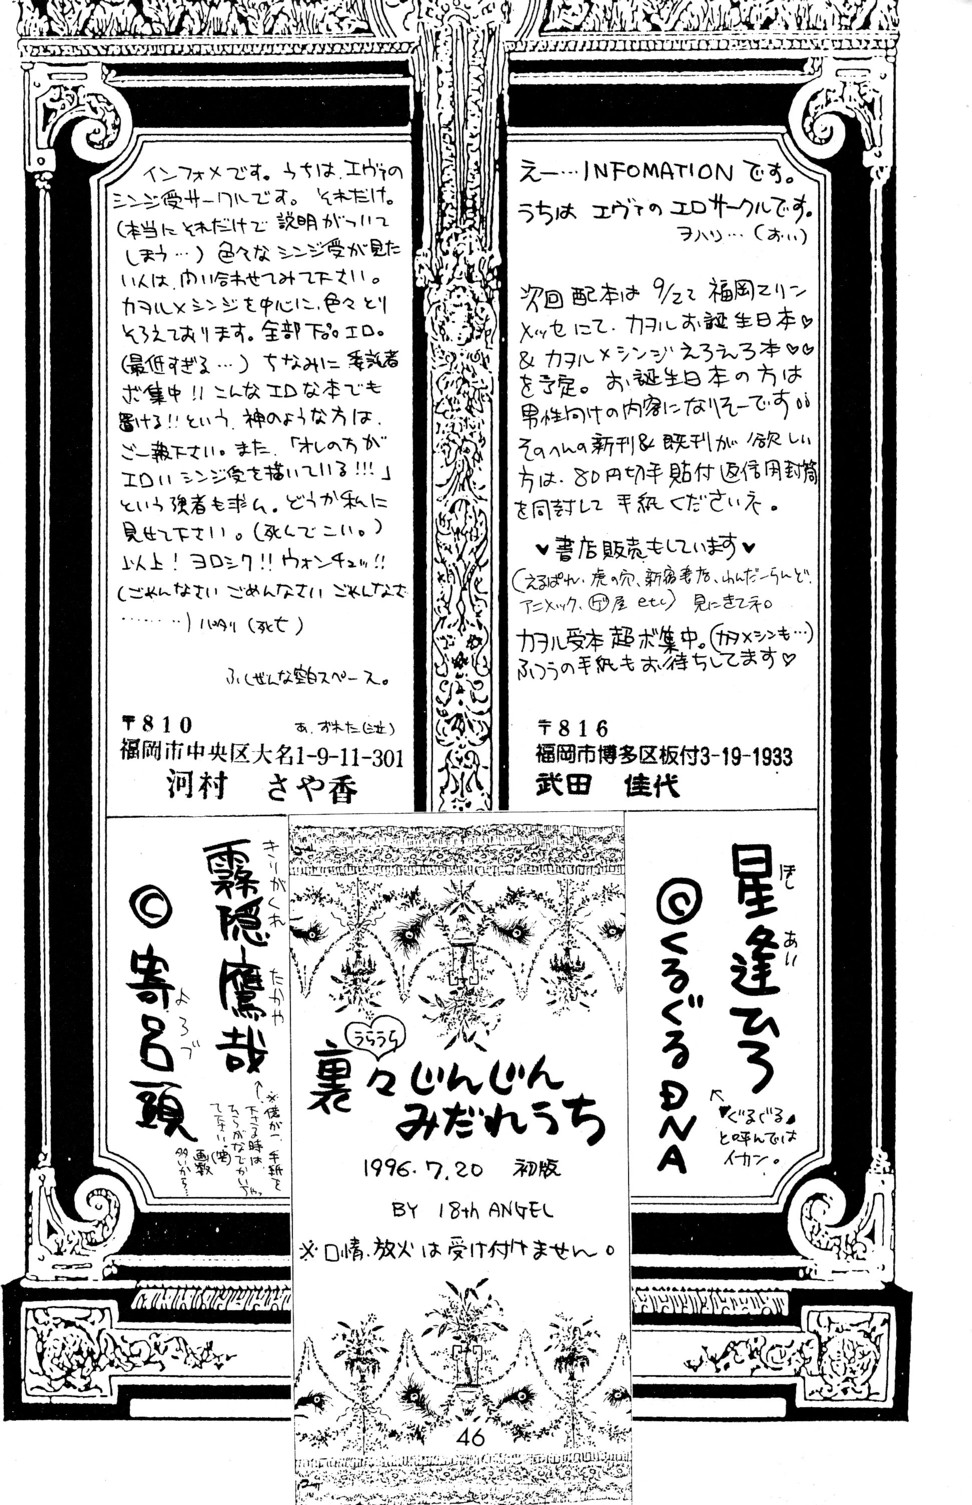 インフォメです。うちは、エヴァの
シンジ受サークルです。それだけ。
(本当にそれだけで説明がついて
しまう…)色々なシンジ受が見た
い人は、問い合わせてみて下さい。
カヲル×シンジを中心に、色々とり
そろえております。全部下品。エロ。
(最低すぎる…)ちなみに委託者
ボ集中!!こんなエロな本でも
置ける!!という、神のような方は、
ご一報下さい。また、「オレの方が
エロいシンジ受を描いている!!!」
という強者も求ム。どうか私に
見せて下さい。(死んでこい。)
以上!ヨロシク!!ウォンチュッ!!
(ごめんなさい ごめんなさい ごめんなさ
………)バタリ(死亡)
ふしぜんな空白スペース。
あ、おれた(泣)
〒810
福岡市中央区大名1-9-11-301
河村 さや香
えー…INFOMATIONです。
うちは エヴァの エロサークルです。
ヲハリ…(おい)
次回配本は 9/22 福岡マリン
メッセにて、カヲルお誕生日本♡
&カヲル×シンジえろえろ本♡♡
を予定。お誕生日本の方は
男性向けの内容になりそーです
そのへんの新刊&既刊が欲しい
方は、80円切手貼付返信用封筒
を同封して 手紙くださいネ。
♥書店販売もしています♥
(えるぱれ、虎の穴、新宿書店、わんだーらんど、
アニメック、ゲ屋 etc)見にきてネ。
カヲル受本 超ボ集中。(カヲ×シンも…)
ふつうの手紙もお待ちしてます♡
〒816
福岡市博多区板付3-19-1933
武田 佳代
きりがくれ たかや
霧隠鷹哉
※僕が、手紙を
下さる時は、
ひらがなでかいちゃっ
て下さい。(笑)
画数
多いから…
© 寄呂頭
よろづ
うらうら
裏々じんじん
みだれうち
1996.7.20 初版
BY 18th ANGEL
※口情、放火は受け付けません。
ほし あい
星逢ひろ
♥ぐるぐる♥
と呼んでは
イカン。
©くるぐるDNA
46